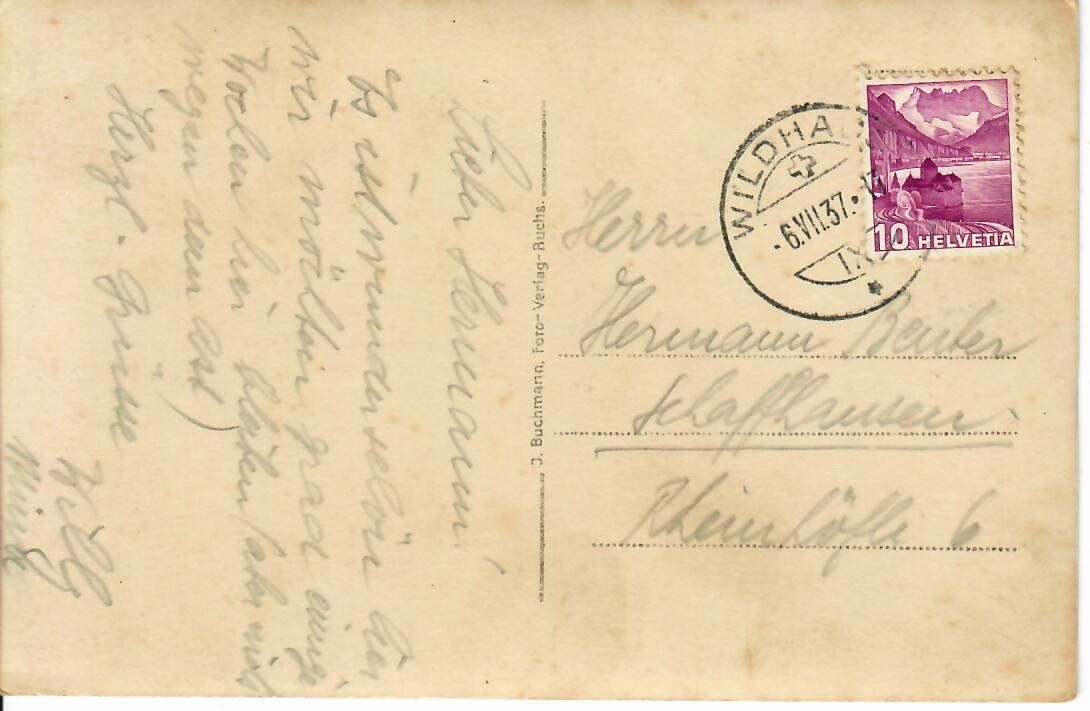 Lieber Hermann!
Es ist wunderschön hier
wir möchten grad einige
Wochen hier bleiben (aber nicht
wegen dem Ost)
Herzl. Grüsse
Willy
J. Buchmann, Foto-Verlag-Buchs.
WILDHAUS
-6.VII.37.
IX
10 HELVETIA
Herrn
Hermann Beuter
Schaffhausen
Rheinhöfli 6